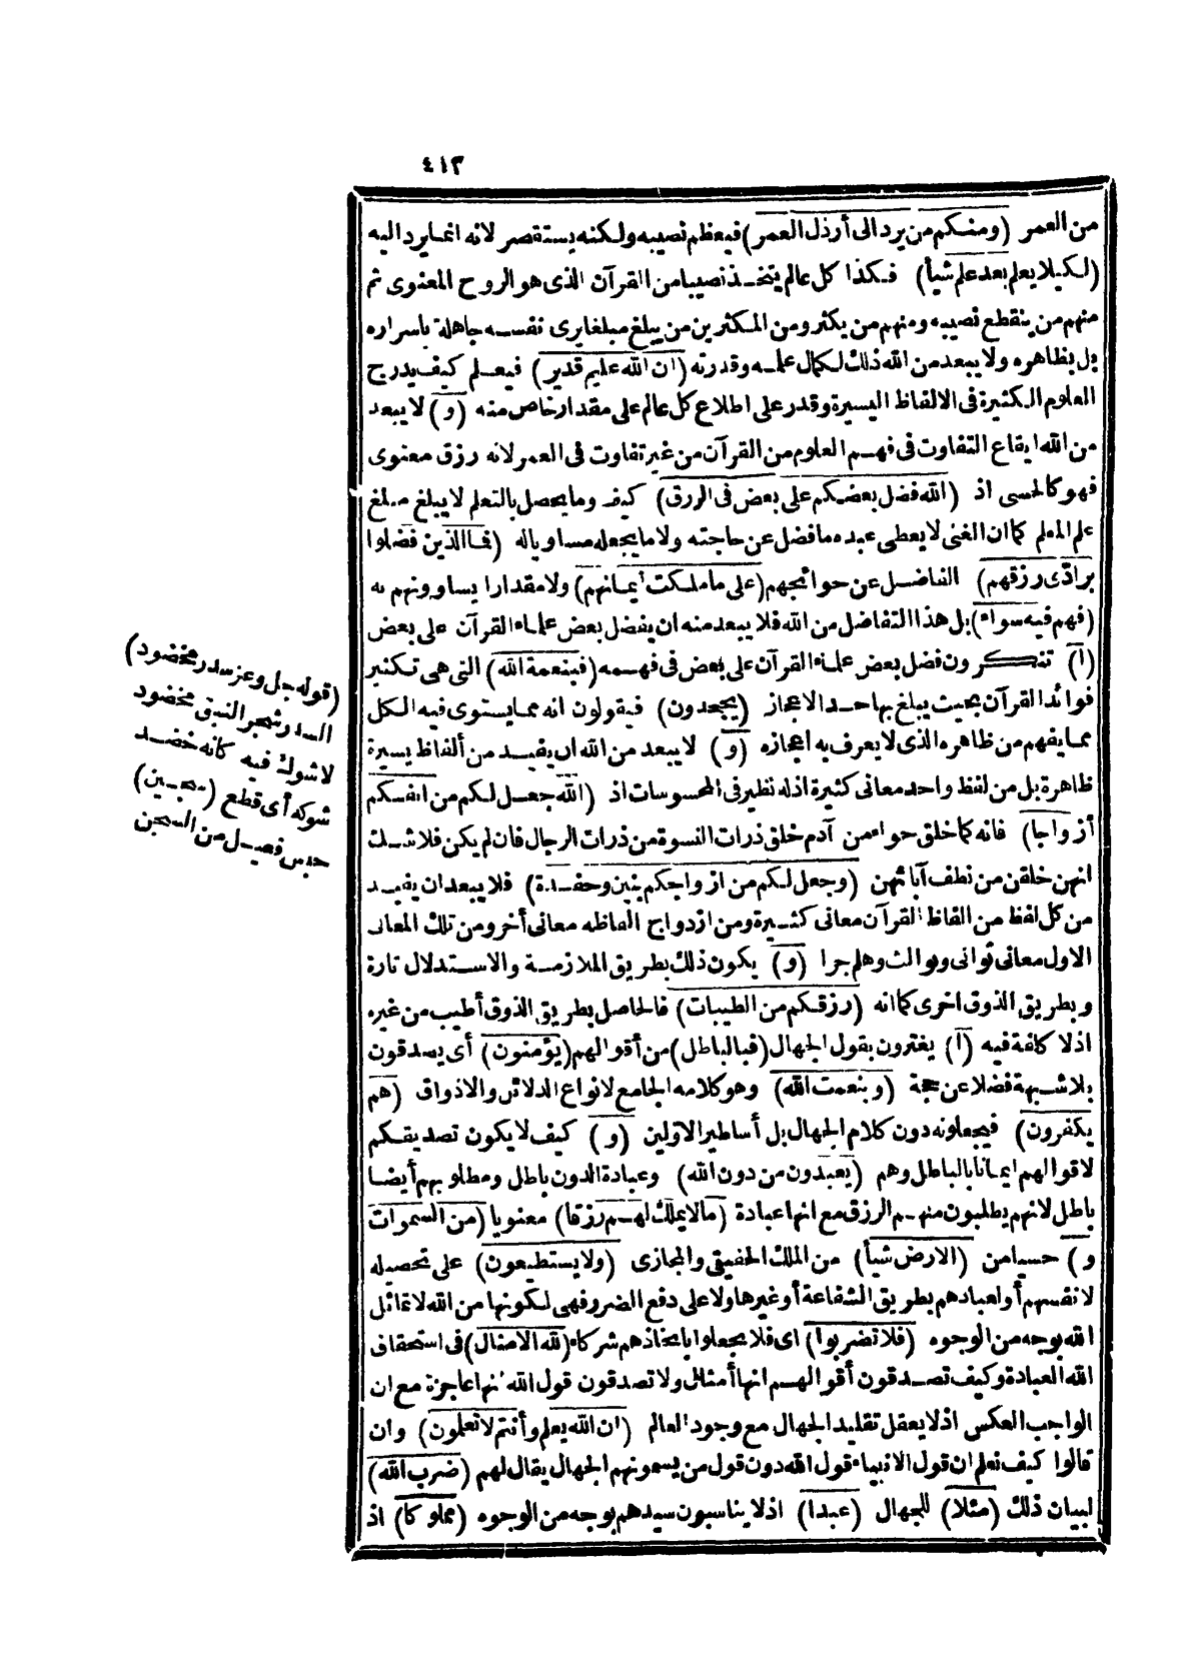 ٤١٣
من العمر (ومنكم من يرد الى أرذل العمر) فيعظم نصيبه ولكنه يستقصر لانه انما يرد اليه
(لكيلا يعلم بعد علم شيأ) فكذا كل عالم يتخذ نصيبا من القرآن الذى هو الروح المعنوى ثم
منهم من ينقطع نصيبه ومنهم من يكثر ومن المكثرين من يبلغ مبلغا يرى نفسه جاهلة باسراره
بل بظاهره ولا يبعد من الله ذلك لكمال علمه وقدرته (ان الله عليم قدير) فيعلم كيف يدرج
العلوم الكثيرة فى الالفاظ اليسيرة وقدر على اطلاع كل عالم على مقدار خاص منه (و) لا يبعد
من الله ايقاع التفاوت فى فهم العلوم من القرآن من غير تفاوت فى العمر لانه رزق معنوى
فهو كالحسى اذ (الله فضل بعضكم على بعض فى الرزق) كيف وما يحصل بالتعلم لا يبلغ مبلغ
علم المعلم كما ان الغنى لا يعطى عبده ما فضل عن حاجته ولا ما يجعله مساويا له (فما الذين فضلوا
برادّى رزقهم) الفاضل عن حوائجهم (على ما ملكت أيمانهم) ولا مقدارا يساوونهم به
(فهم فيه سواء) بل هذا التفاضل من الله فلا يبعد منه ان يفضل بعض علماء القرآن على بعض
(أ) تنكرون فضل بعض علماء القرآن على بعض فى فهمه (فبنعمة الله) التى هى تكثير
فوائد القرآن بحيث يبلغ بها حد الاعجاز (يجحدون) فيقولون انه مما يستوى فيه الكل
مما يفهم من ظاهره الذى لا يعرف به اعجازه (و) لا يبعد من الله ان يفيد من ألفاظ يسيرة
ظاهرة بل من لفظ واحد معانى كثيرة اذ له نظير فى المحسوسات اذ (الله جعل لكم من انفسكم
أزواجا) فانه كما خلق حواء من آدم خلق ذرات النسوة من ذرات الرجال فان لم يكن فلا شك
انهن خلقن من نطف آبائهن (وجعل لكم من ازواجكم بنين وحفدة) فلا يبعد ان يفيد
من كل لفظ من الفاظ القرآن معانى كثيرة ومن ازدواج الفاظه معانى أخر ومن تلك المعانى
الاول معانى ثوانى وثوالث وهلم جرا (و) يكون ذلك بطريق الملازمة والاستدلال تارة
وبطريق الذوق اخرى كما انه (رزقكم من الطيبات) فالحاصل بطريق الذوق أطيب من غيره
اذ لا كلفة فيه (أ) يغترون بقول الجهال (فبالباطل) من أقوالهم (يؤمنون) أى يصدقون
بلا شبهة فضلا عن حجة (وبنعمت الله) وهو كلامه الجامع لانواع الدلائل والاذواق (هم
يكفرون) فيجعلونه دون كلام الجهال بل أساطير الاوّلين (و) كيف لا يكون تصديقكم
لاقوالهم ايمانا بالباطل وهم (يعبدون من دون الله) وعبادة الدون باطل ومطلوبهم أيضا
باطل لانهم يطلبون منهم الرزق مع انها عبادة (مالا يملك لهم رزقا) معنويا (من السموات
و) حسيا من (الارض شيأ) من الملك الحقيقى والمجازى (ولا يستطيعون) على تحصيله
لانفسهم أو لعبادهم بطريق الشفاعة أو غيرها ولا على دفع الضرر فهى لكونها من الله لا تماثل
الله بوجه من الوجوه (فلا تضربوا) اى فلا يجعلوا باتخاذهم شركاء (لله الامثال) فى استحقاق
الله العبادة وكيف تصدقون أقوالهم انها أمثال ولا تصدقون قول الله انها عاجزة مع ان
الواجب العكس اذ لا يعقل تقليد الجهال مع وجود العالم (ان الله يعلم وأنتم لا تعلمون) وان
قالوا كيف نعلم ان قول الانبياء قول الله دون قول من يسمونهم الجهال يقال لهم (ضرب الله)
لبيان ذلك (مثلا) للجهال (عبدا) اذ لا يناسبون سيدهم بوجه من الوجوه (مملوكا) اذ
(قوله جل وعز سدر مخضود)
السدر شجر النبق مخضود
لا شوك فيه كانه خضد
شوكه أى قطع (سجين)
حبس فعيل من السجن